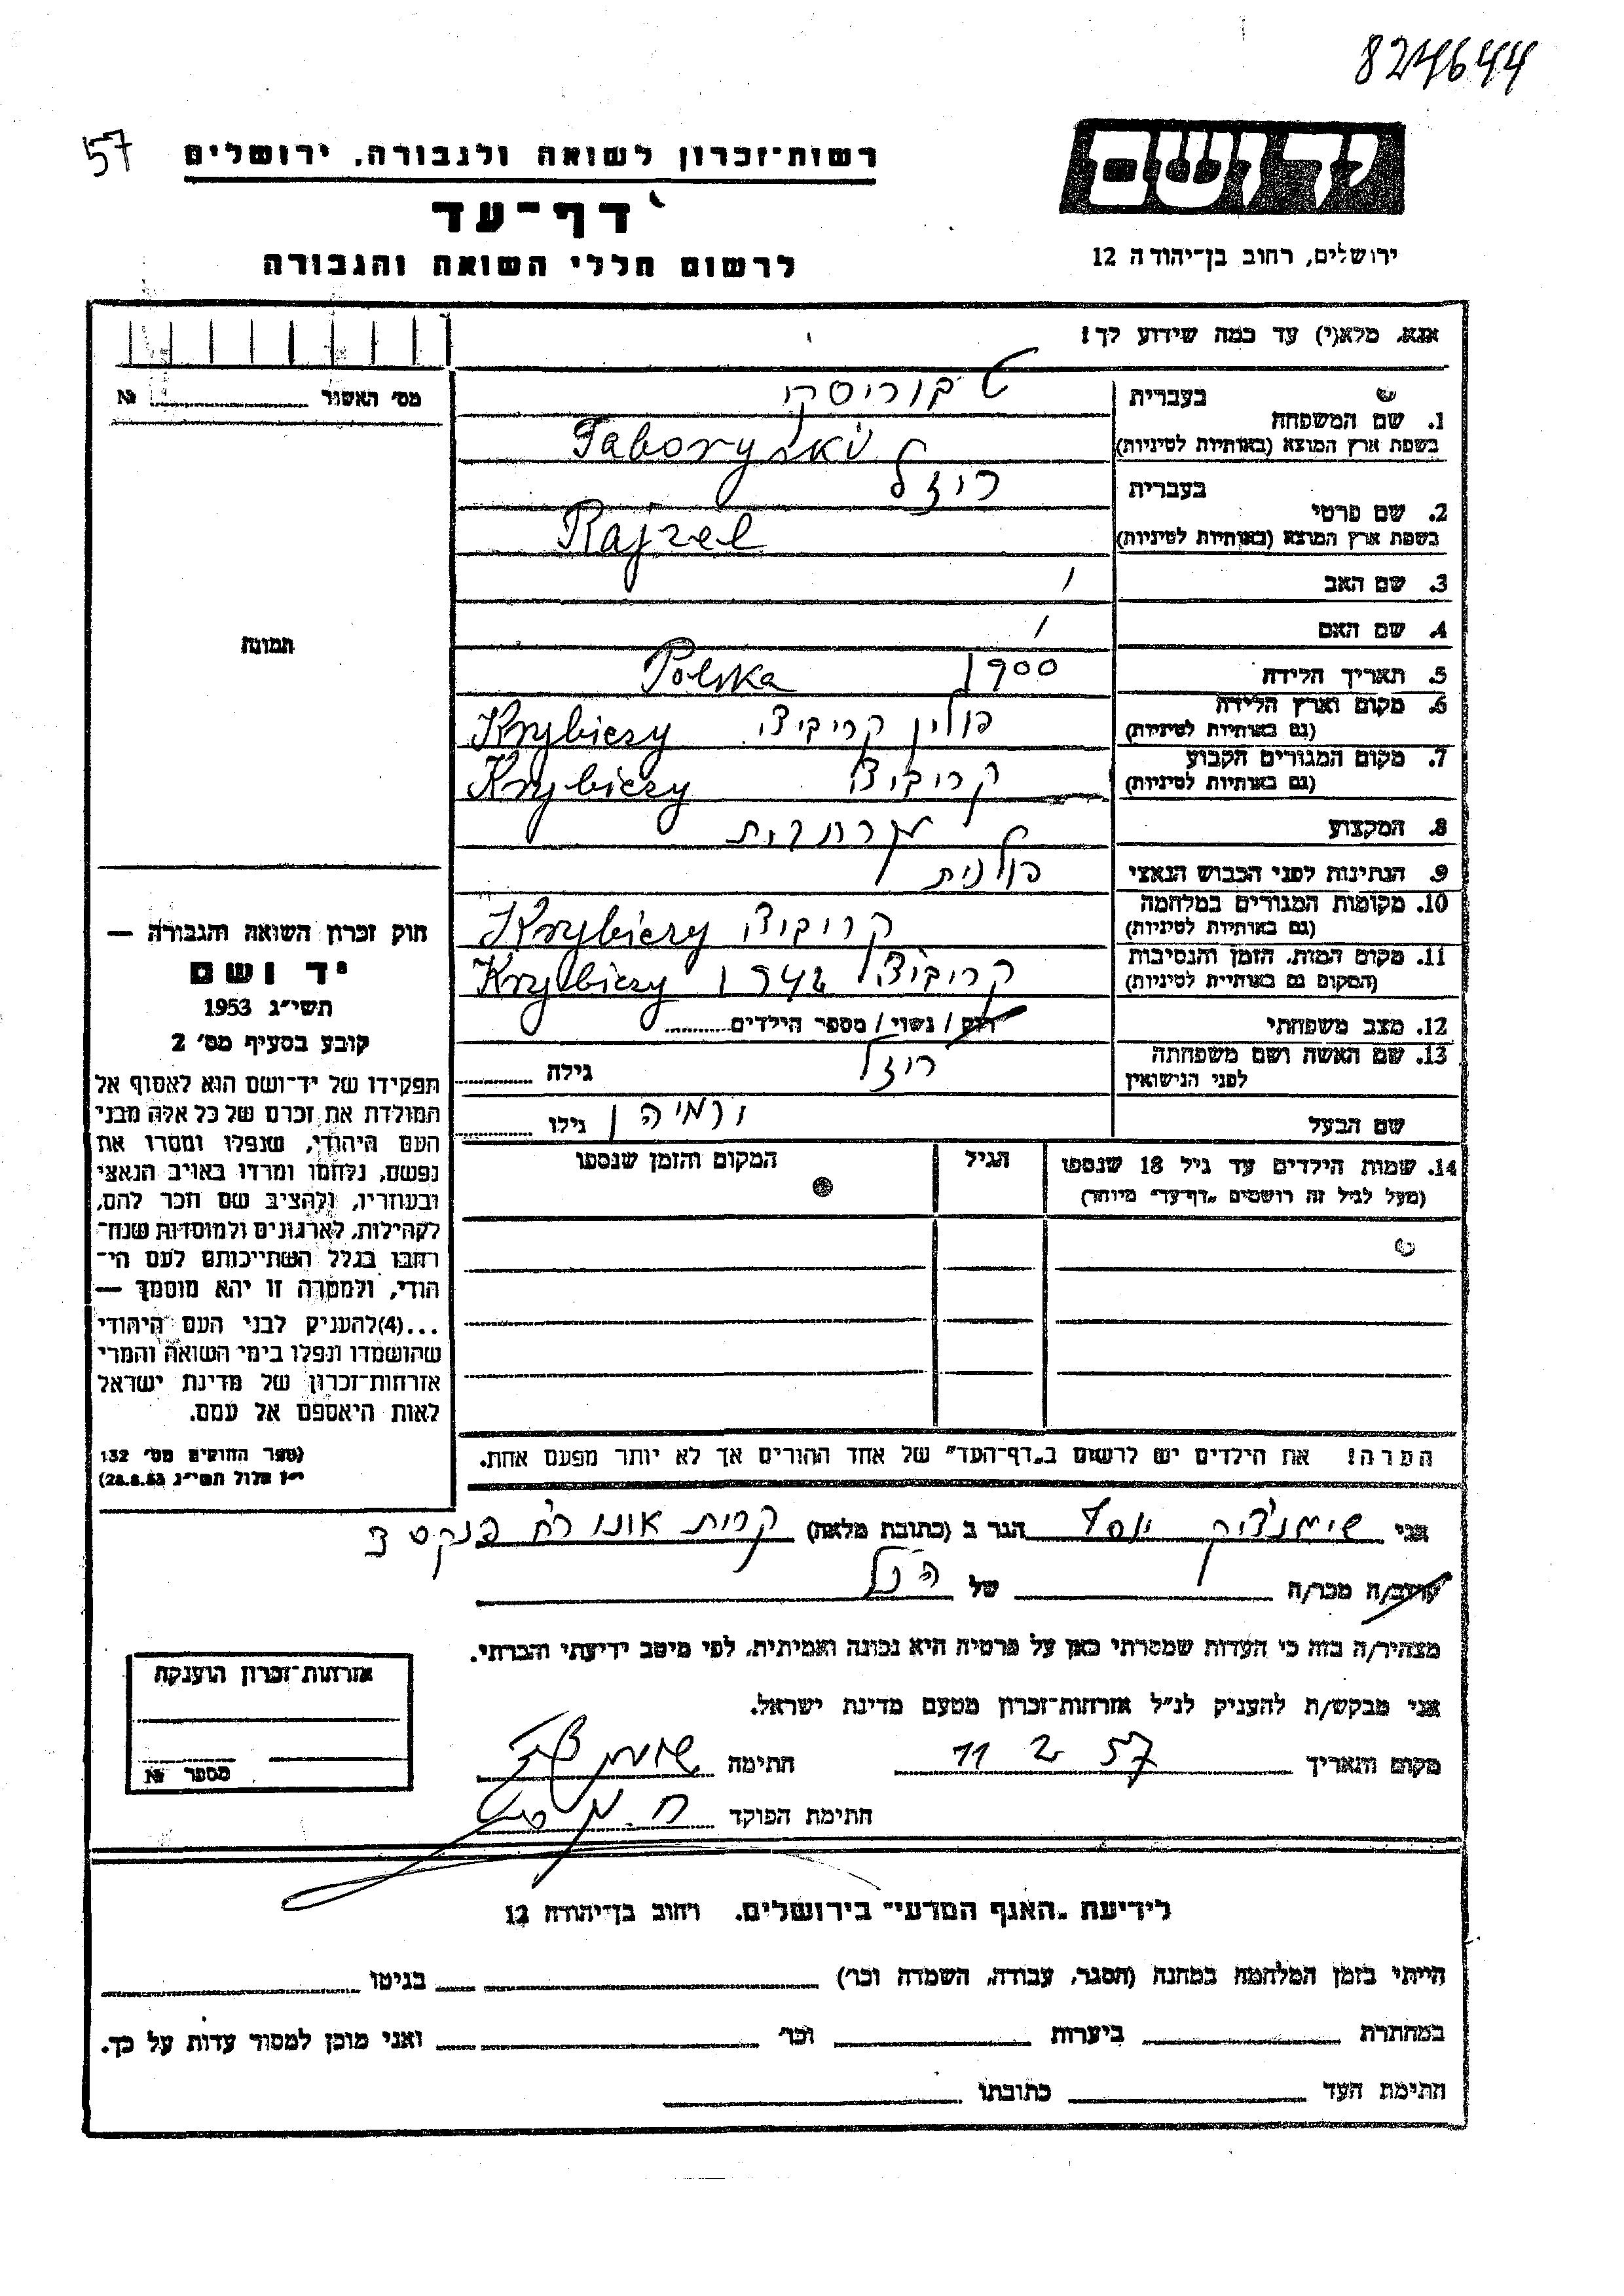 8274644
57
יד ושם
רשות־זכרון לשואה ולגבורה, ירושלים
דף־עד
לרשום חללי השואה והגבורה
ירושלים, רחוב בן־יהודה 12
אנא, מלא(י) עד כמה שידוע לך!
מס' האשור № 
בעברית
טבוריסקי
1. שם המשפחה
בשפת ארץ המוצא (באותיות לטיניות)
Taboryski
בעברית
ריזל
2. שם פרטי
בשפת ארץ המוצא (באותיות לטיניות)
Rajzel
3. שם האב /
4. שם האם /
תמונה
5. תאריך הלידה 1900 Polska
6. מקום וארץ הלידה
(גם באותיות לטיניות)
פולין קריביצי Krzybiczy
7. מקום המגורים הקבוע
(גם באותיות לטיניות)
קריביצי Krzybiczy
8. המקצוע
9. הנתינות לפני הכבוש הנאצי פולנית
10. מקומות המגורים במלחמה
(גם באותיות לטיניות)
קריביצי Krzybiczy
11. מקום המות, הזמן והנסיבות
(המקום גם באותיות לטיניות)
קריביצי 1942 Krzybiczy
12. מצב משפחתי רוק / נשוי / מספר הילדים
13. שם האשה ושם משפחתה
לפני הנישואין
ריזל גילה
שם הבעל ירמיהו גילו
14. שמות הילדים עד גיל 18 שנספו
(מעל לגיל זה רושמים "דף־עד" מיוחד)
הגיל
המקום והזמן שנספו
הערה! את הילדים יש לרשום ב"דף־העד" של אחד ההורים אך לא יותר מפעם אחת.
חוק זכרון השואה והגבורה —
יד ושם
תשי"ג 1953
קובע בסעיף מס' 2
תפקידו של יד־ושם הוא לאסוף אל
המולדת את זכרם של כל אלה מבני
העם היהודי, שנפלו ומסרו את
נפשם, נלחמו ומרדו באויב הנאצי
ובעוזריו, ולהציב שם וזכר להם,
לקהילות, לארגונים ולמוסדות שנח־
רבו בגלל השתייכותם לעם הי־
הודי, ולמטרה זו יהא מוסמך —
...(4)להעניק לבני העם היהודי
שהושמדו ונפלו בימי השואה והמרי
אזרחות־זכרון של מדינת ישראל
לאות היאספם אל עמם.
(ספר החוקים מס' 132
י"ז אלול תשי"ג 28.8.53)
אני יוסף הגר ב (כתובת מלאה) קרית אונו רח' פנקס 3
קרוב/ה מכר/ה של הנ"ל
מצהיר/ה בזה כי העדות שמסרתי כאן על פרטיה היא נכונה ואמיתית, לפי מיטב ידיעתי והכרתי.
אני מבקש/ת להעניק לנ"ל אזרחות־זכרון מטעם מדינת ישראל.
מקום ותאריך 11 2 57 חתימה
חתימת הפוקד
אזרחות־זכרון הוענקה
מספר №
לידיעת "האגף המדעי" בירושלים. רחוב בן־יהודה 12
הייתי בזמן המלחמה במחנה (הסגר, עבודה, השמדה וכו') בגיטו
במחתרת ביערות וכו' ואני מוכן למסור עדות על כך.
חתימת העד כתובתו